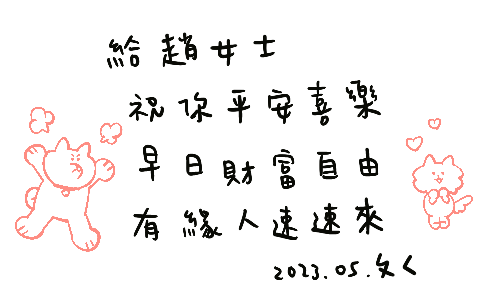 給趙女士
祝你平安喜樂
早日財富自由
有緣人速速來
2023.05.ㄆㄑ